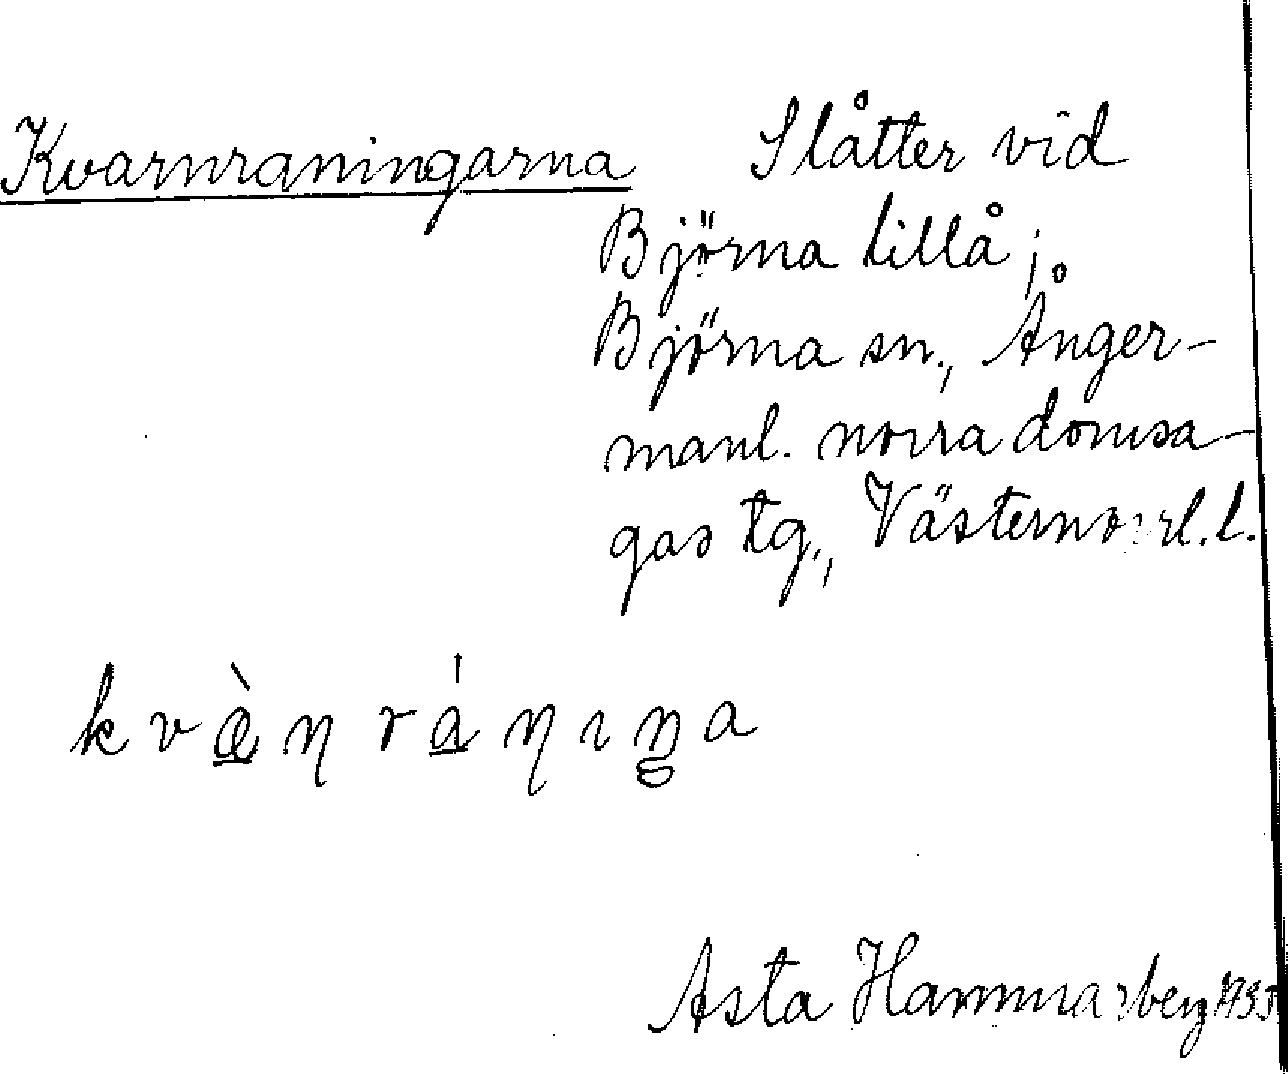 Kvarnraningarna Slåtter vid
Björna lillå;
Björna sn., Ånger-
manl. norra domsa-
gas tg., Västernorrl. l.
Asta Hammarberg